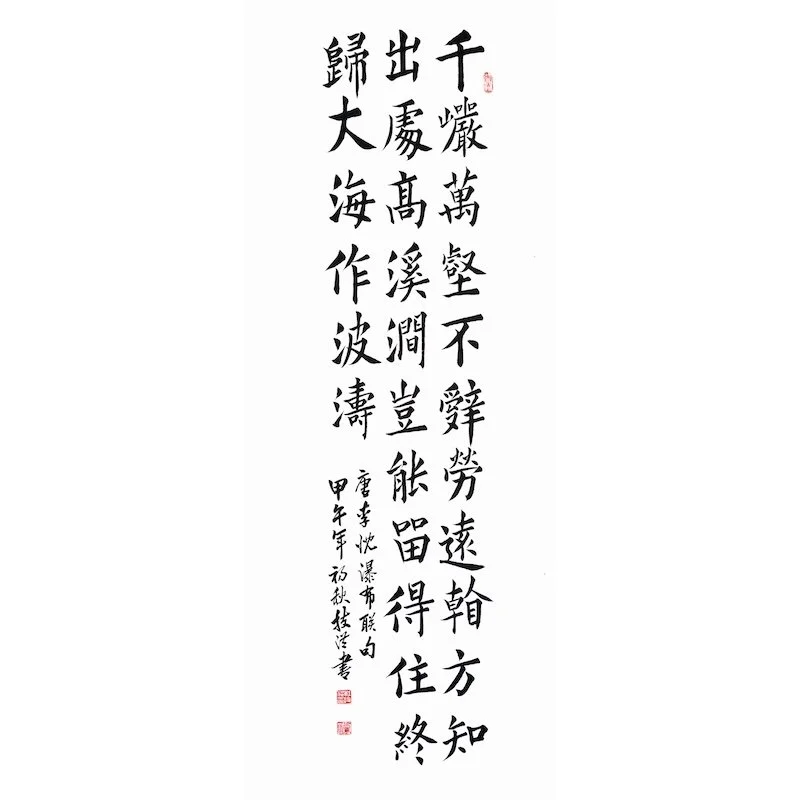 千巗萬壑不辭勞遠看方知
出處髙溪澗豈能留得住終
歸大海作波濤
唐李忱瀑布联句
甲午年初秋書